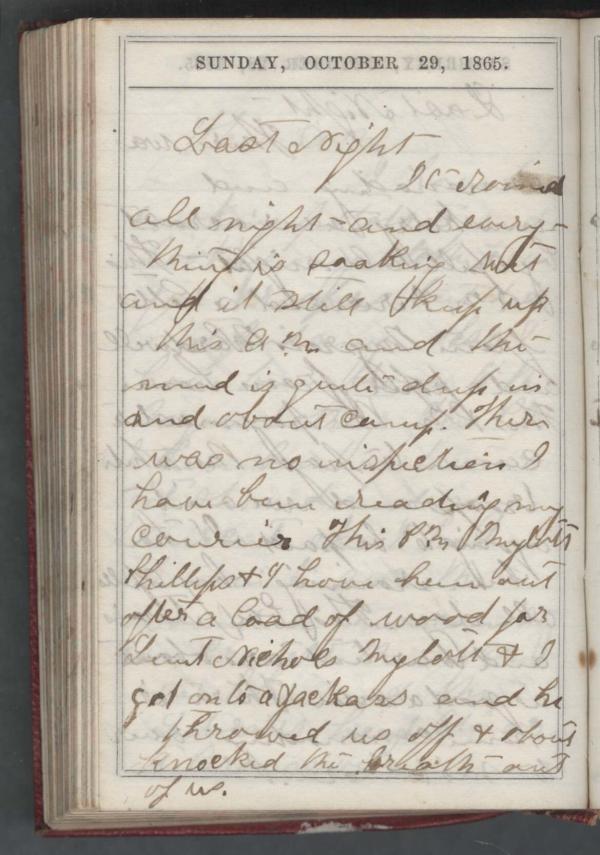 SUNDAY, OCTOBER 29, 1865.
Last Night
It raind
all night and every-
thing is soaking wet
and it still keep up
this A.M. and the
mud is quite deep in
and about camp. There
was no inspection I
have been reading my
courier This P.M. Mylott
Phillips & I have been out
after a load of wood for
Leut Nichols Mylott & I
got on to a Jackass and he
throwed us off & about
knocked the breath out
of us.